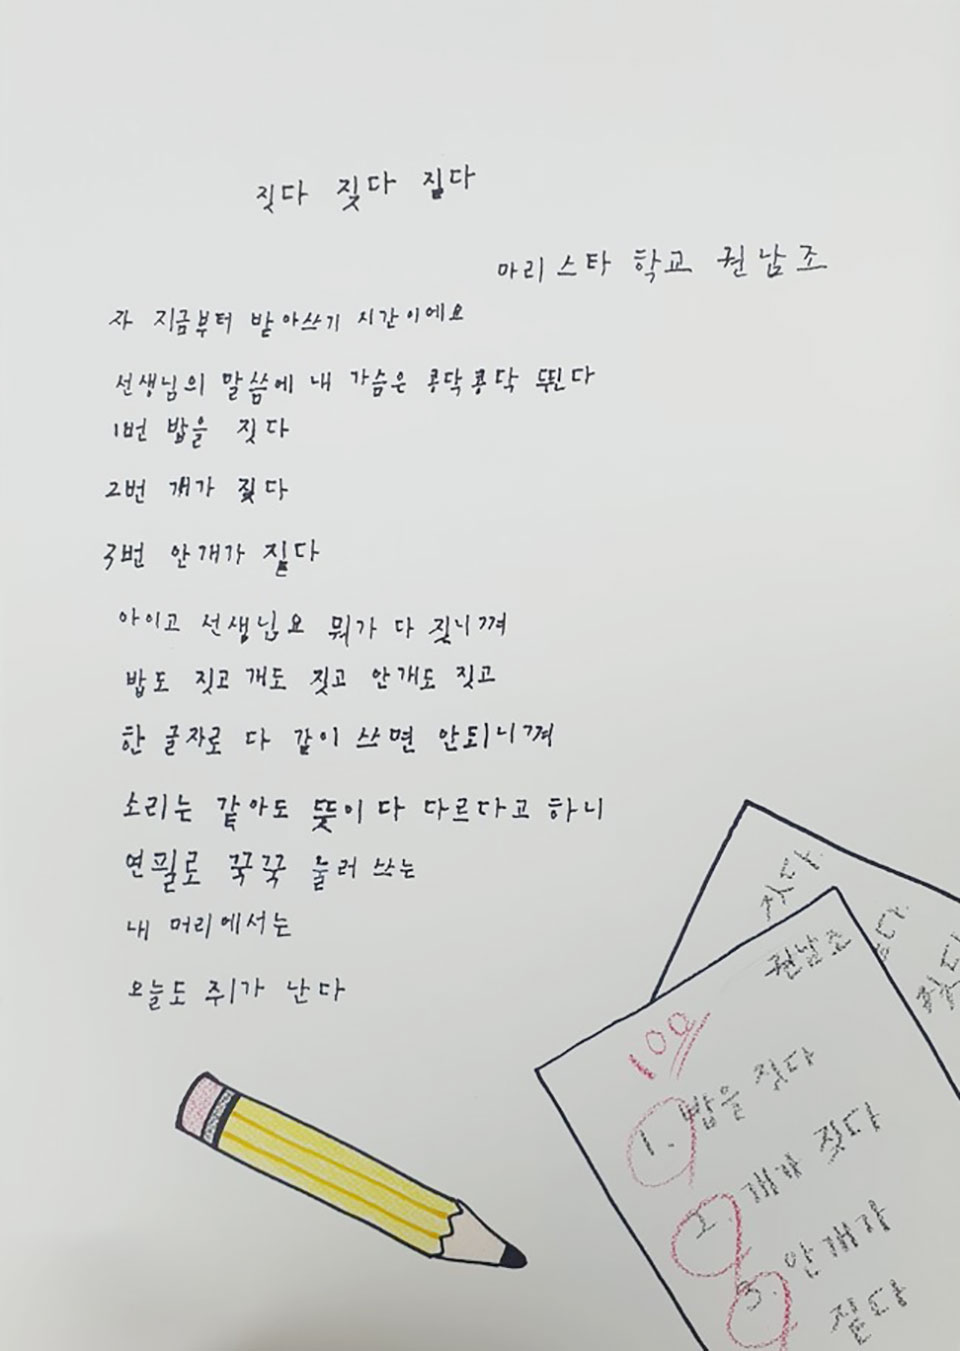 짓다 짖다 짙다
마리스타 학교 권남조
자 지금부터 받아쓰기 시간이에요
선생님의 말씀에 내 가슴은 콩닥콩닥 뛴다
1번 밥을 짓다
2번 개가 짖다
3번 안개가 짙다
아이고 선생님요 뭐가 다 짖니껴
밥도 짓고 개도 짓고 안개도 짓고
한 글자로 다 같이 쓰면 안되니껴
소리는 같아도 뜻이 다 다르다고 하니
연필로 꾹꾹 눌러 쓰는
내 머리에서는
오늘도 쥐가 난다
권남조
100
1. 밥을 짓다
2. 개가 짖다
3. 안개가
짙다